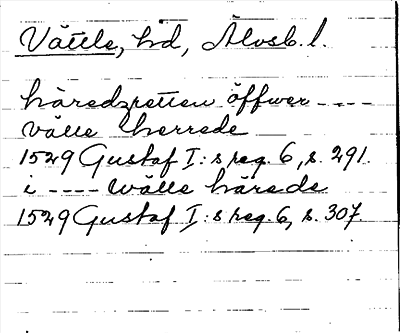 Vättle, hd, Älvsb. l.
häredzretten öffwer ----
välle herrede
1529 Gustaf I:s reg. 6, s. 291.
i ---- wälle härede
1529 Gustaf I:s reg. 6, s. 307.